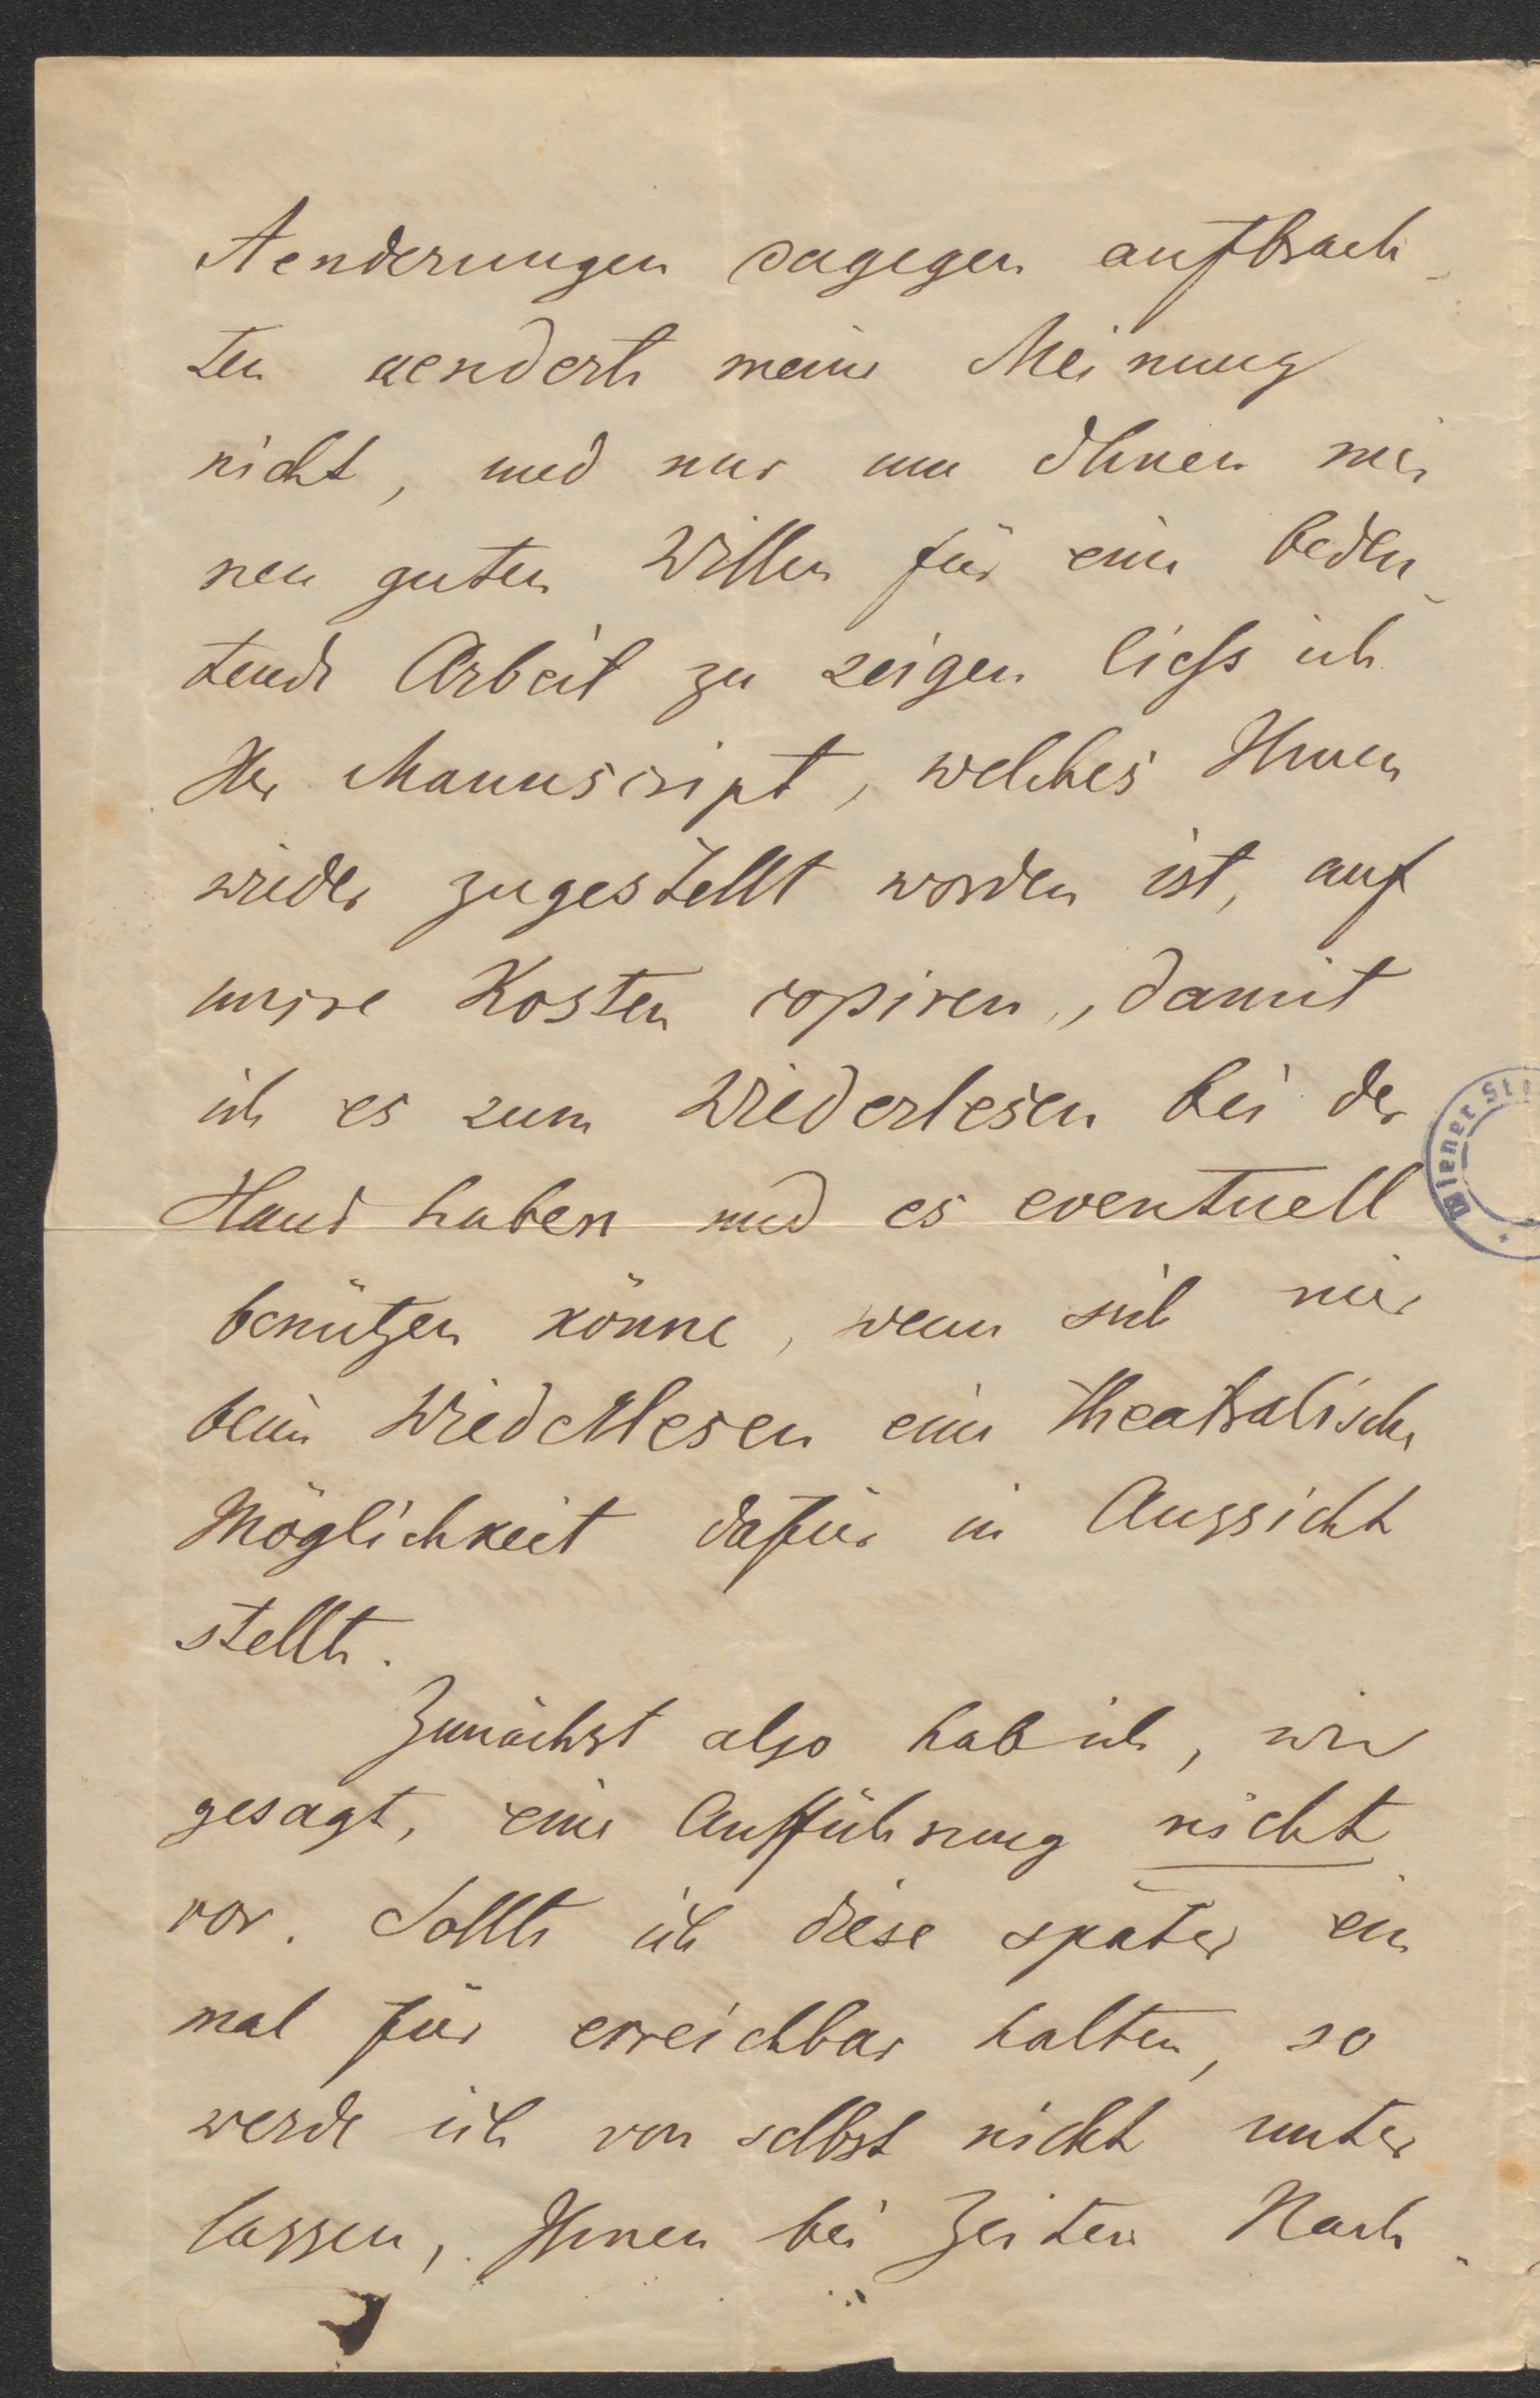 Aenderungen dagegen aufbrach-
ten aenderte meine Meinung
nicht, und nur um Ihnen mei
nen guten Willen für eine bedeu-
tende Arbeit zu zeigen liess ich
Ihr Manuscript, welches Ihnen
wieder zugestellt worden ist, auf
unsre Kosten copiren, damit
ich es zum Wiederlesen bei der
Hand haben und es eventuell
benützen könne, wenn sich mir
beim Wiederlesen eine theatralische
Möglichkeit dafür in Aussicht
stellte.
Zunächst also hab ich, wie
gesagt, eine Aufführung nicht
vor. Sollte ich diese später ein
mal für erreichbar halten, so
werde ich von selbst nicht unter
lassen, Ihnen bei Zeiten Nach-
Wiener St